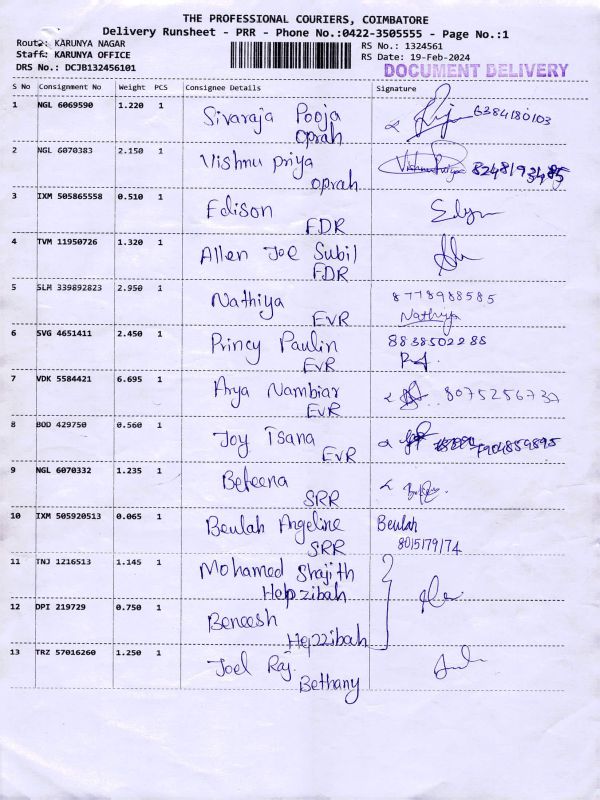 THE PROFESSIONAL COURIERS, COIMBATORE
Delivery Runsheet - PRR - Phone No.:0422-3505555 - Page No.:1
Route: KARUNYA NAGAR
RS No.: 1324561
Staff: KARUNYA OFFICE
RS Date: 19-Feb-2024
DRS No.: DCJB132456101
DOCUMENT DELIVERY
S No Consignment No Weight PCS Consignee Details Signature
1 NGL 6069590 1.220 1 Sivaraja Pooja 6384180103
Oprah
2 NGL 6070383 2.150 1 Vishnu Priya Vishnu Priya
Oprah
3 IXM 505865558 0.510 1 Edison
FDR
4 TVM 11950726 1.320 1 Allen Joe Subil
FDR
5 SLM 339892823 2.950 1 Nathiya 8778988585
EVR Nathiya
6 SVG 4651411 2.450 1 Princy Paulin 8838502288
EVR
7 VDK 5584421 6.695 1 Arya Nambiar
EVR
8 BOD 429750 0.560 1 Joy Isana 7904859895
EVR
9 NGL 6070332 1.235 1 Befeena
SRR
10 IXM 505920513 0.065 1 Beulah Angeline Beulah
SRR 8015179174
11 TNJ 1216513 1.145 1 Mohamed Shajith
Hepzibah
12 DPI 219729 0.750 1 Beneesh
Hepzibah
13 TRZ 57016260 1.250 1 Joel Raj
Bethany